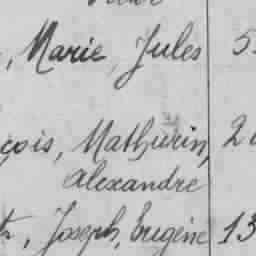 , Marie, Jules 5
çois, Mathurin, 2
Alexandre
, Joseph, Eugène 13